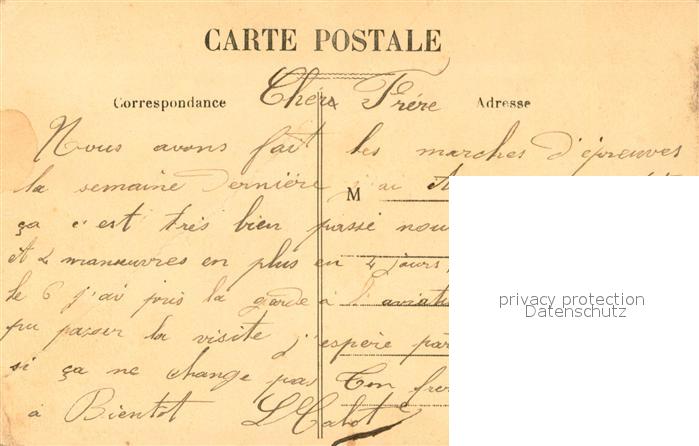 CARTE POSTALE
Correspondance Cher Frére Adresse
Nous avons fait les marches d'épreuves
la semaine dernière j'ai
M
ça c'est trés bien passé nou
et 2 manœuvres en plus en 4 jours,
le 6 j'ai pris la garde à l'aviat
pu passer la visite j'espère par
si ça ne change pas Ton frer
à Bientot
privacy protection
Datenschutz